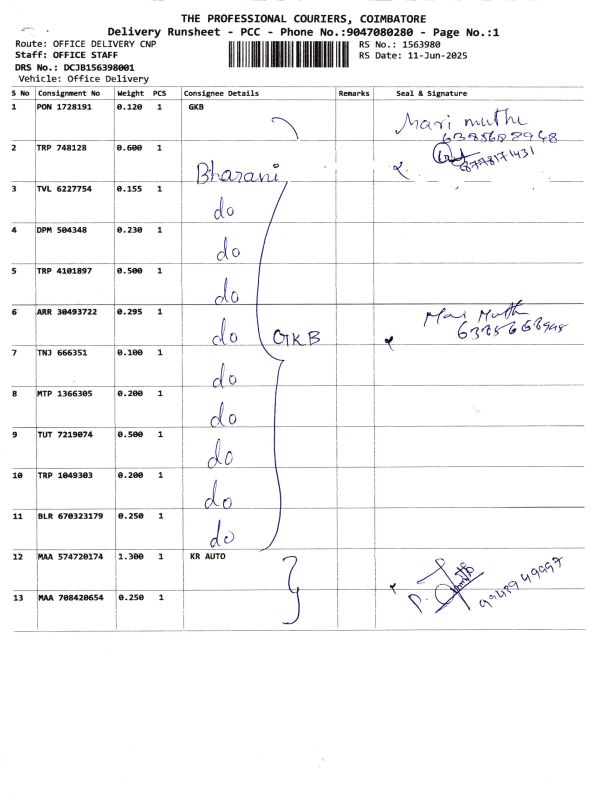 THE PROFESSIONAL COURIERS, COIMBATORE
Delivery Runsheet - PCC - Phone No.:9047080280 - Page No.:1
Route: OFFICE DELIVERY CNP RS No.: 1563980
Staff: OFFICE STAFF RS Date: 11-Jun-2025
DRS No.: DCJB156398001
Vehicle: Office Delivery
S No Consignment No Weight PCS Consignee Details Remarks Seal & Signature
1 PON 1728191 0.120 1 GKB
Mari muthu
2 TRP 748128 0.600 1
8778171431
Bharani
3 TVL 6227754 0.155 1
do
4 DPM 504348 0.230 1
do
5 TRP 4101897 0.500 1
do
6 ARR 30493722 0.295 1
Mari Muthu
do GKB
7 TNJ 666351 0.100 1
do
8 MTP 1366305 0.200 1
do
9 TUT 7219074 0.500 1
do
10 TRP 1049303 0.200 1
do
11 BLR 670323179 0.250 1
do
12 MAA 574720174 1.300 1 KR AUTO
13 MAA 708420654 0.250 1
P.